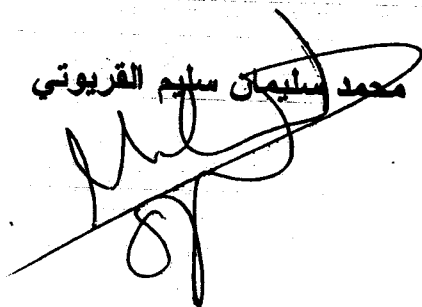 محمد سليمان سليم القريوتي